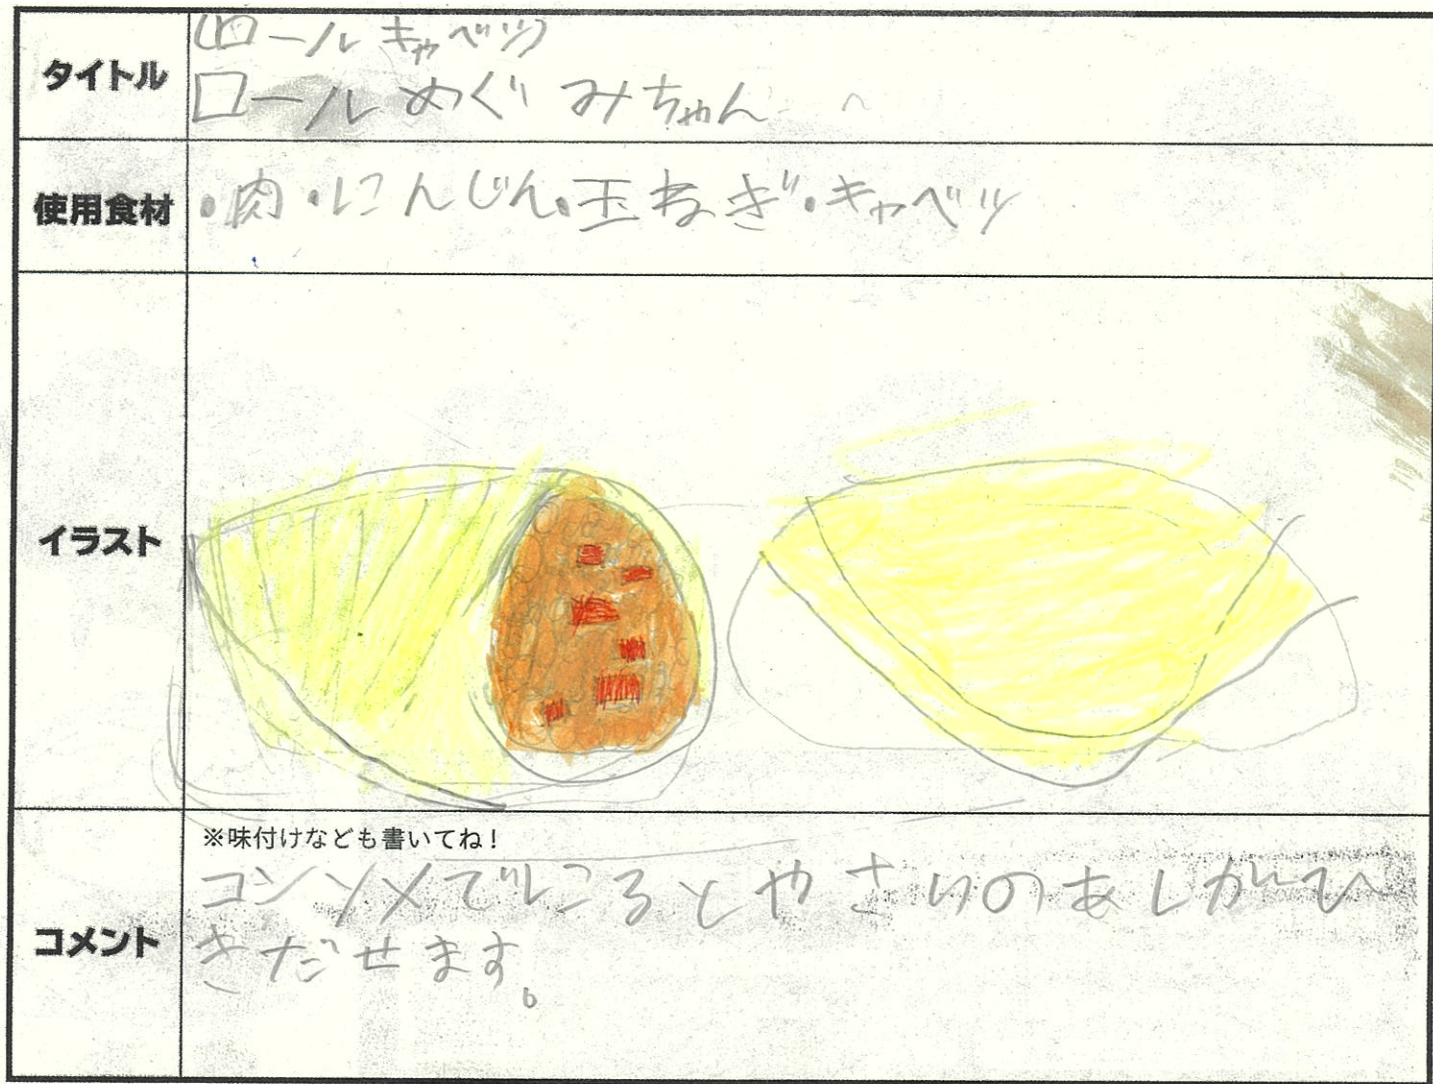 タイトル
(ロールキャベツ)
ロールめぐみちゃん
使用食材
・肉・にんじん・玉ねぎ・キャベツ
イラスト
コメント
※味付けなども書いてね！
コンソメでにるとやさいのあじがひ
きだせます。